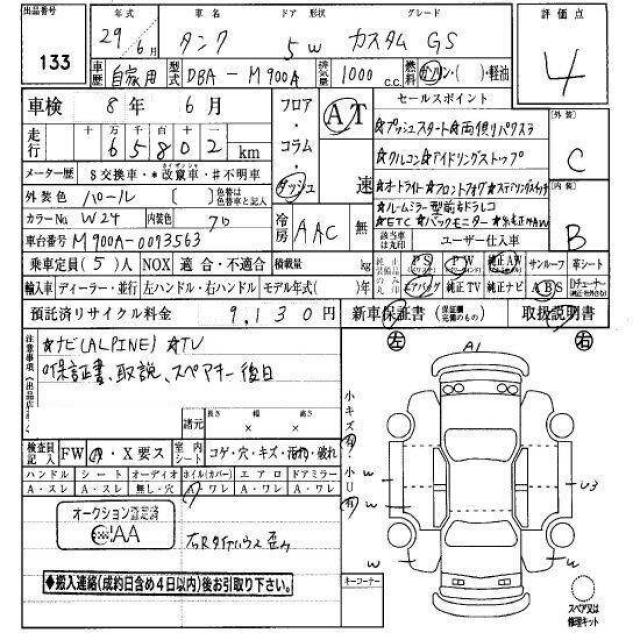 出品番号 年式 車名 ドア 形状 グレード 評価点
133 29年 6月 タンク 5 W カスタム GS 4
車歴 自家用 型式 DBA-M900A 排気量 1000 c.c. 燃料 ガソリン・( )・軽油
車検 8年 6月 フロア・コラム・ダッシュ AT 速 セールスポイント 外装 C
走行 十 万 千 百 十 一
6 5 8 0 2 km
★プッシュスタート★両側リパクスラ
★クルコン★アイドリングストップ
メーター歴 $交換車・*改竄車・#不明車
カイザンシャ
★オートライト★フロントフォグ★ステアリングスイッチ 内装 B
外装色 パール ( ) 色替は色替車と記入
★ルームミラー型前方ドラレコ
カラーNo. W24 内装色 クロ 冷房 AAC 無
★ETC★バックモニター★純正AW
車台番号 M900A-0093563 該当車は丸印 ユーザー仕入車
乗車定員(5)人 NOX 適合・不適合 積載量 kg PS PW 純正AW サンルーフ 革シート
輸入車 ディーラー・並行 左ハンドル・右ハンドル モデル年式( )年 エアバッグ 純正TV 純正ナビ ABS
預託済リサイクル料金 9,130円 新車保証書(保証欄完備のもの) 取扱説明書
注意事項 ★ナビ(ALPINE) ★TV
保証書、取説、スペアキー後日
左 右
A1
諸元 長さ × 幅 × 高さ
小キズ有? 小U有
検査員記入 FW A・X要ス 室内シート コゲ・穴・キズ・汚れ・破れ
ハンドル シート オーディオ ホイル(カバー) エアロ ドアミラー
A・スレ A・スレ 無し・穴 A・ワレ A・ワレ A・ワレ
W U3
W
W W
オークション査定済
JAA
右Rタイヤハウス歪み
◆搬入連絡(成約日含め4日以内)後お引取り下さい。◆
キーコーナー
スペア又は修理キット